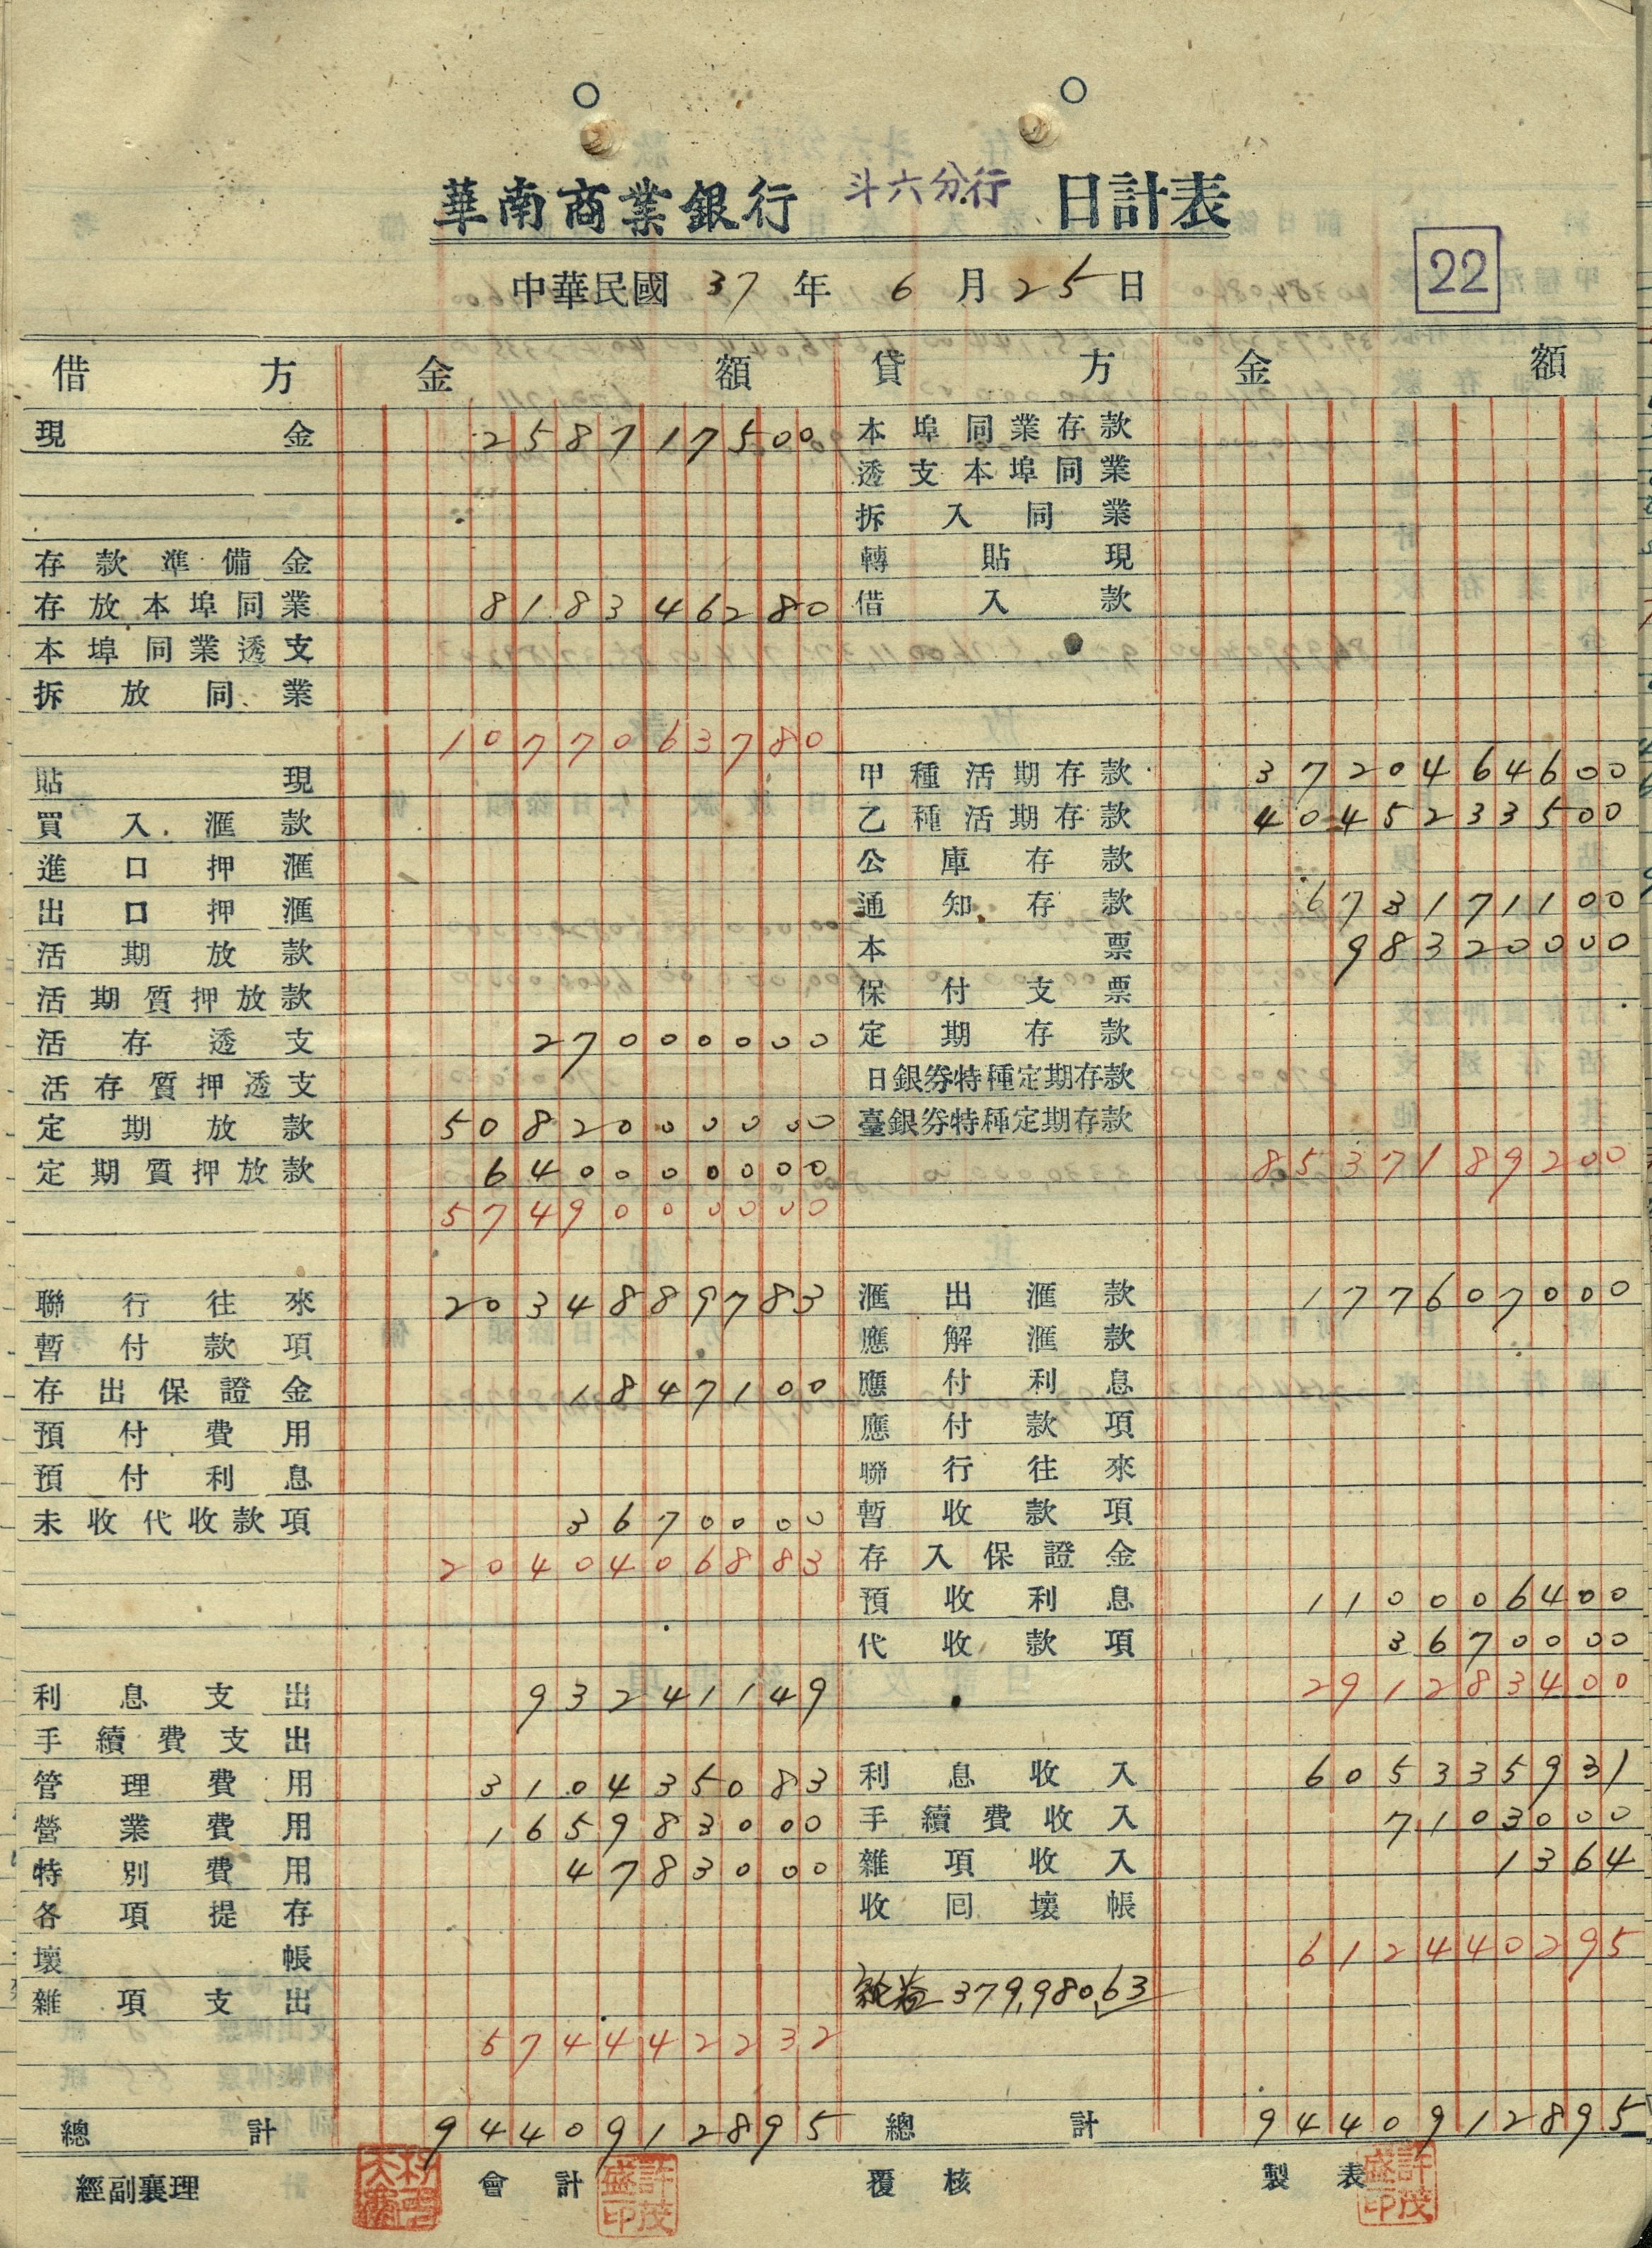 華南商業銀行 斗六分行 日計表
中華民國 37 年 6 月 25 日
22
借方 金額 貸方 金額
現金 258717500 本埠同業存款
透支本埠同業
拆入同業
存款準備金 轉貼現
存放本埠同業 818346280 借入款
本埠同業透支
拆放同業
1077063780
貼現 甲種活期存款 3720464600
買入滙款 乙種活期存款 4045233500
進口押滙 公庫存款
出口押滙 通知存款 673171100
活期放款 本票 98320000
活期質押放款 保付支票
活存透支 27000000 定期存款
活存質押透支 日銀券特種定期存款
定期放款 5082000000 臺銀券特種定期存款
定期質押放款 640000000 8537189200
5749000000
聯行往來 2034889783 滙出滙款 177607000
暫付款項 應解滙款
存出保證金 1847100 應付利息
預付費用 應付款項
預付利息 聯行往來
未收代收款項 3670000 暫收款項
2040406883 存入保證金
預收利息 110006400
代收款項 3670000
利息支出 93241149 291283400
手續費支出
管理費用 310435083 利息收入 605335931
營業費用 165983000 手續費收入 7103000
特別費用 4783000 雜項收入 1364
各項提存 收回壞帳
壞帳 612440295
雜項支出 純益 379,980.63
574442232
總計 9440912895 總計 9440912895
經副襄理 會計 許茂盛印 覆核 製表 許茂盛印